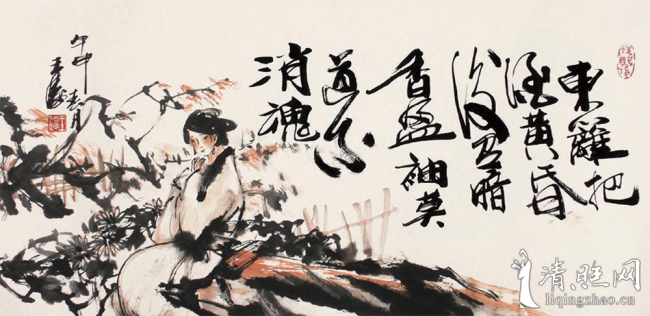 東籬把
酒黄昏
後有暗
香盈袖莫
道不
消魂
春月
清照网
liqingzhao.cn